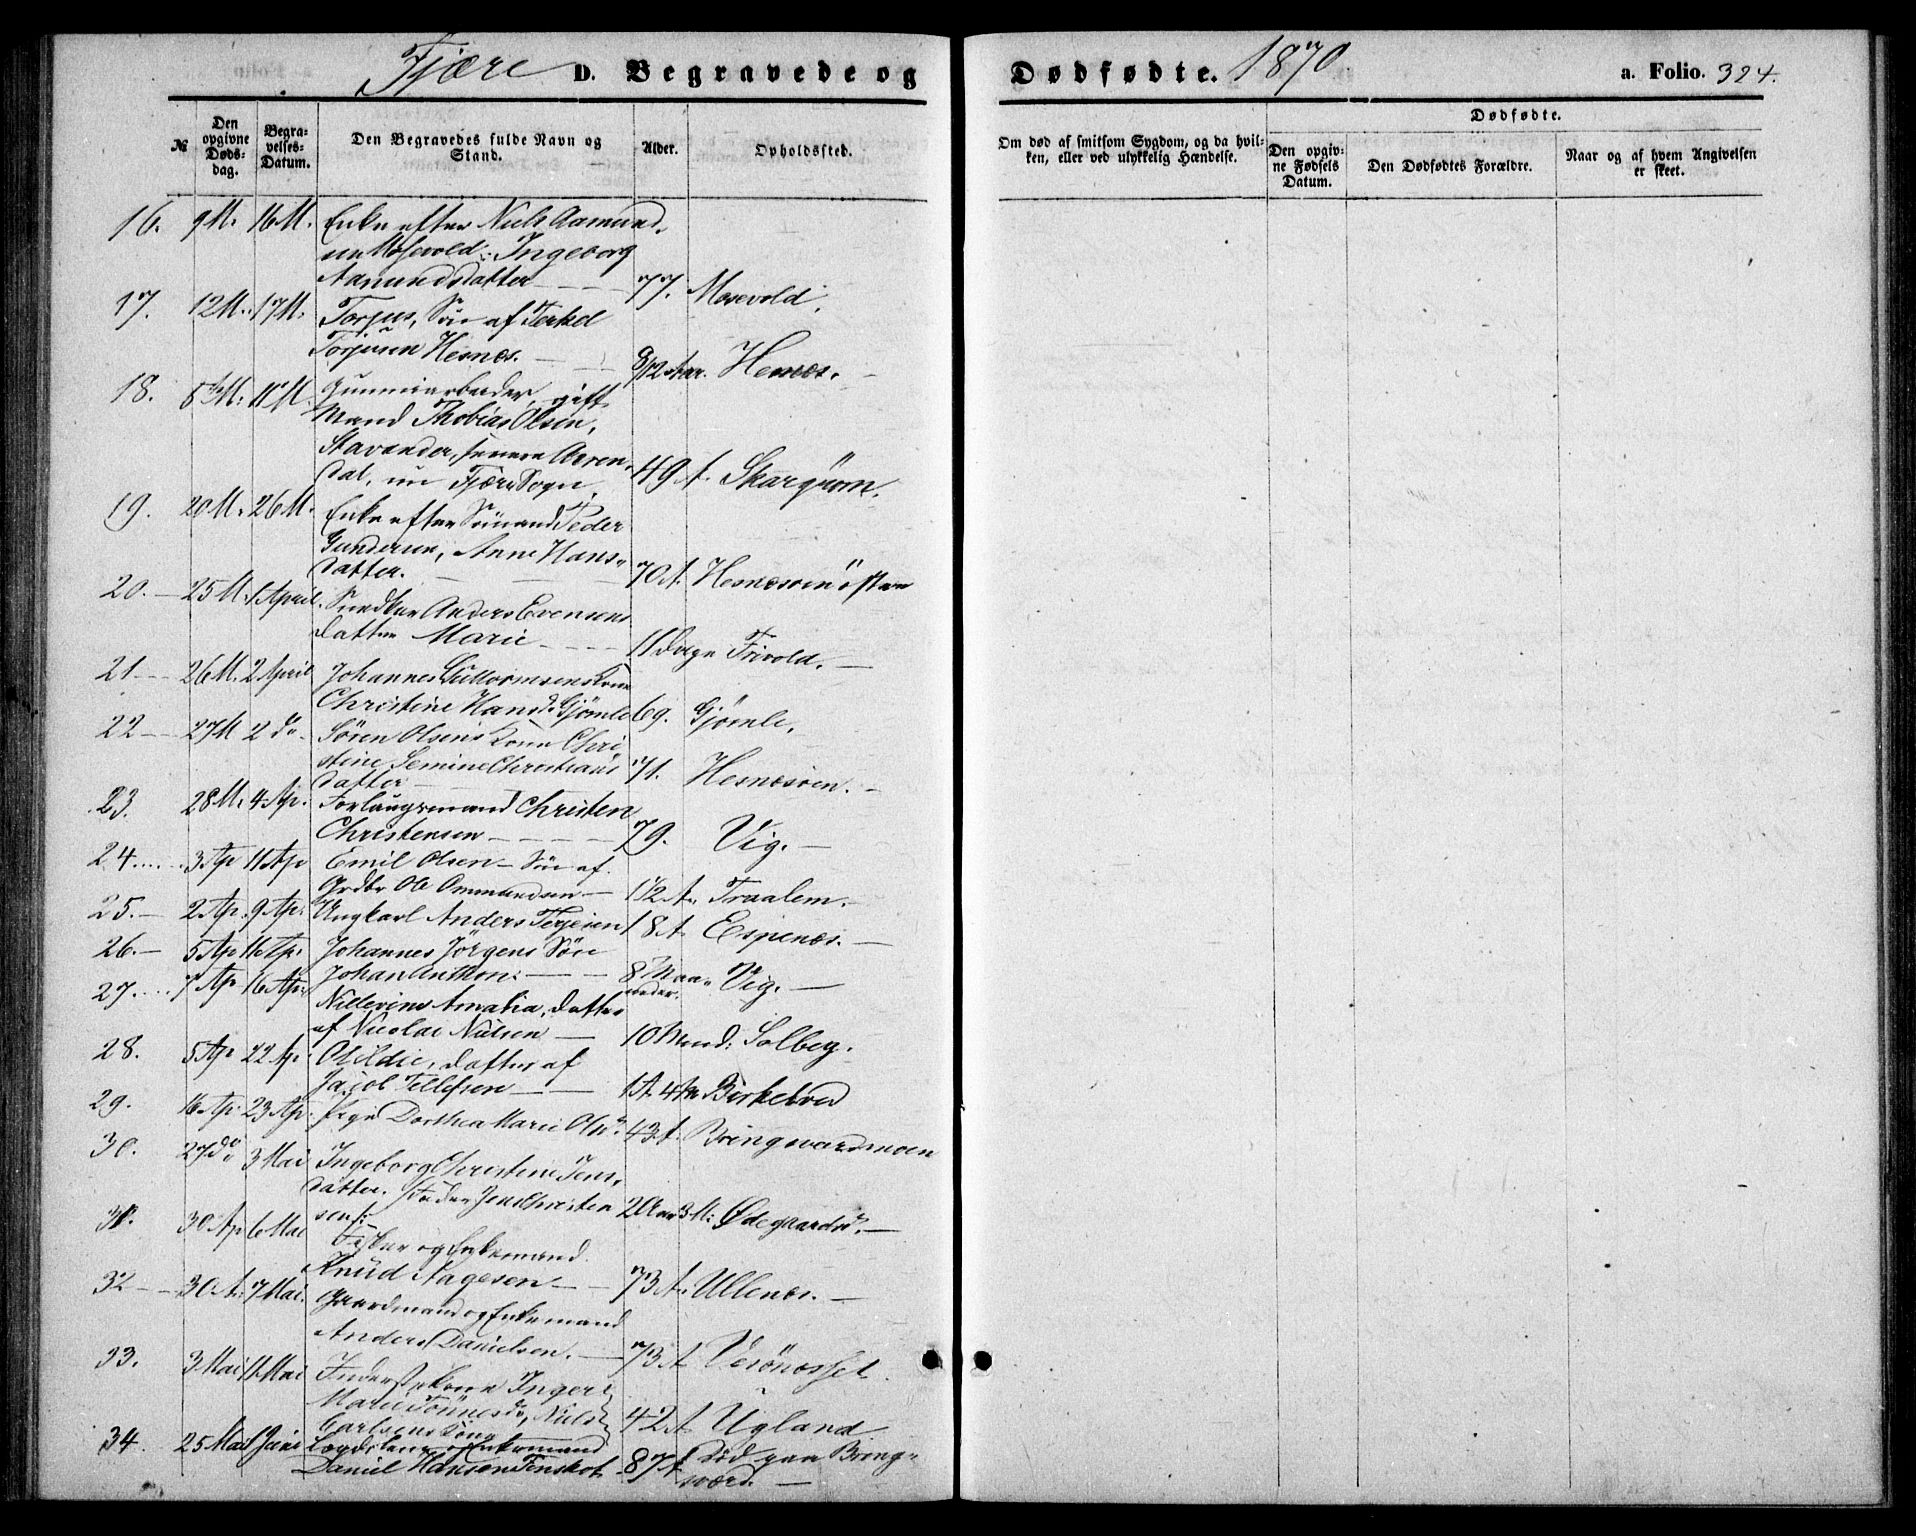 Fjære D. Begravede og Dødfødte. 1870. a. Folio. 324.
№ Den opgivne Døds-dag. Begra-velses-Datum. Den Begravedes fulde Navn og Stand. Alder. Opholdssted. Om død af smitsom Sygdom, og da hvil-ken, eller ved ulykkelig Hændelse. Dødfødte. Den opgiv-ne Fødsels Datum. Den Dødfødtes Forældre. Naar og af hvem Angivelsen er skeet.
16. 9 M. 16 M. Enke efter Niels Aamund-
sen Mosevold: Ingeborg
Aanundsdatter 77. Mosevold.
17. 12 M. 17 M. Torjus, Søn af Terkel
Torjusen Hesnes. 8/12 Aar. Hesnæs.
18. 5 M. 11 M. Gummiarbeider, gift
Mand Thobias Olsen,
Stavander, senere Aren-
dal, nu Fjære Sogn. 49 A.
19. 20 M. 26 M. Enke efter Sömand Peder
Gundersen, Anne Hans-
datter. 70 A. Hesnesöen östre
20. 25 M. 1 April. Snedker Anders Evensens
datter Marie 11 Dage Frivold.
21 26 M. 2 April Johannes Guttormsens Kone
Christine Hansd. Gjömle 69. Gjömle.
22 27 M 2 do. Sören Olsens Kone Chri-
stine Semine Christians
datter 71. Hesnesöen.
23. 28 M. 4 Ap. Forlaugsmand Christen
Christensen 79. Vig.
24. 3 Ap 11 Ap Emil Olsen - Sön af
Grdbr Ole Ommundsen 1 1/2 A. Traalem.
25. 2 Ap. 9 Ap. Ungkarl Anders Terjesen 18 A Espenes.
26. 5 Ap 11 Ap. Johannes Jörgens Sön
Johan Anthon. 8 Maa-neder. Vig.
27. 7 Ap 16 Ap. Nillevine Amalia, datter
af Nicolai Nielsen 10 Maand: Solberg.
28. 5 Ap 22 Ap. datter af
Jacob Tellefsen 1 A. 4 M Birketved
29. 16 Ap. 23 Ap. Pige Dorthea Marie Olsd. 43 A. Bringsværdmoen
30. 27 do 3 Mai Ingeborg Christine Jens-
datter. Fader Jens Christen
sen. 2 Aar 3 M. Ødegaarden.
31. 30 Ap 6 Mai Fisker og Enkemand
Knud Aagesen 73 A. Ullenes.
32 30 A. 7 Mai. Gaardmand og Enkemand
Anders Danielsen. 73 A
33. 3 Mai 11 Mai Inderstkone Inger
Marie Tönnesd., Niels
Carlsens Kone 42 A Ugland
34. 25 Mai 1 Juni Enkemand
Daniel Hansen 87 A Död paa Bring-
sværd.